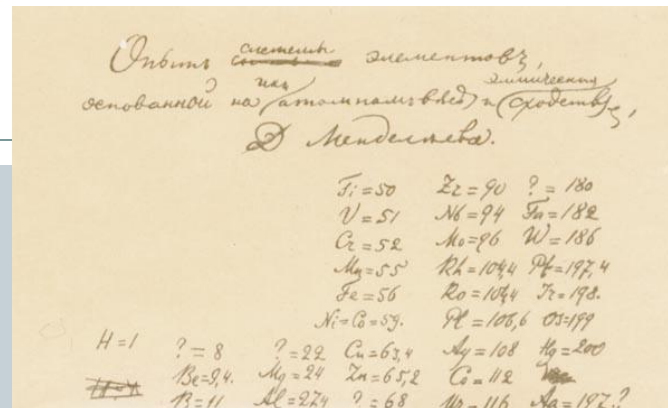 системы
Опытъ элементовъ,
ихъ химическомъ
основанной на атомномъ вѣсѣ и сходствѣ,
Д Менделѣева.
Ti=50 Zr=90 ?=180
V=51 Nb=94 Ta=182
Cr=52 Mo=96 W=186
Mn=55 Rh=104,4 Pt=197,4
Fe=56 Ru=104,4 Ir=198.
Ni=Co=59. Pl=106,6 Os=199
H=1 ?=8 ?=22 Cu=63,4 Ag=108 Hg=200
Be=9,4. Mg=24 Zn=65,2 Cd=112
B=11 Al=27,4 ?=68 Ur=116 Au=197?